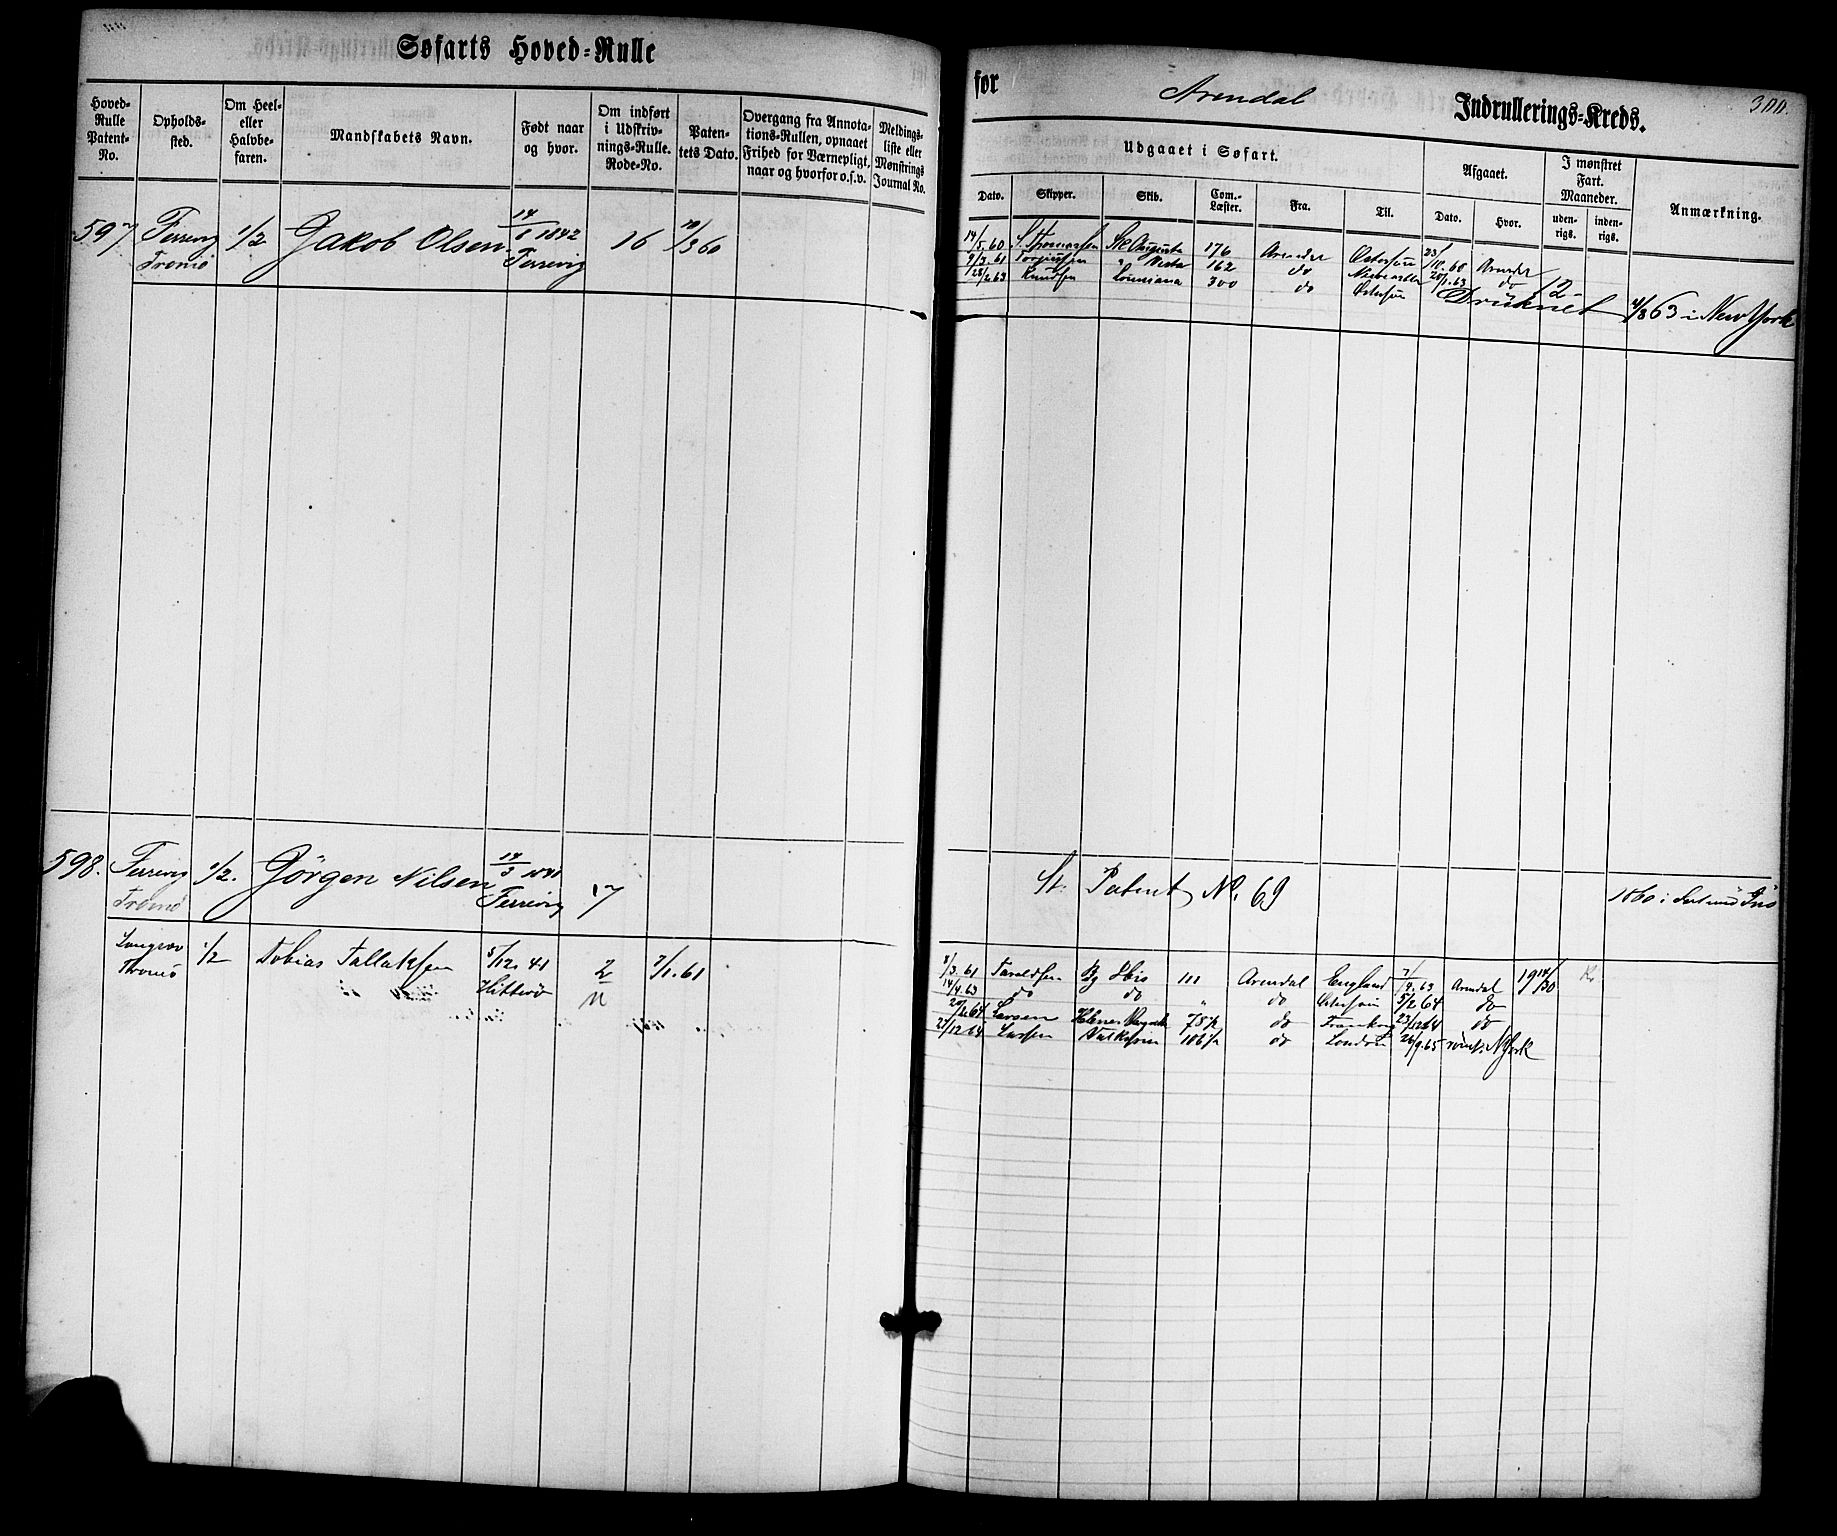 Søfarts Hoved-Rulle
for Arendal Indrullerings-Kreds.
300.
Hoved-Rulle Patent-No.
Opholds-sted.
Om Heel- eller Halvbe-faren.
Mandskabets Navn.
Født naar og hvor.
Om indført i Udskriv-nings-Rulle. Rode-No.
Paten-tets Dato.
Overgang fra Annota-tions-Rullen, opnaaet Frihed for Værnepligt, naar og hvorfor o.s.v.
Meldings-liste eller Mønstrings Journal No.
Udgaaet i Søfart.
Afgaaet.
I mønstret Fart. Maaneder.
Anmærkning.
Dato.
Skipper.
Skib.
Com.-Læster.
Fra.
Til.
Dato.
Hvor.
uden-rigs.
inden-rigs.
597 Færvig Tromø 1/2 Jakob Olsen 14/1 1842 Færvig 16 10/3 60
14/5.60 S. Thomassen Augusta 176 Arendal Østersøen 23/10.60 Arendal
9/3.61 Vesta 162 do 20/1.63 do 12
28/2.63 Knudsen Louisiana 300 do Østersøen Druknet 4/8 63 i New York
598. Færvig Tromø 1/2. Jörgen Nilsen 14/3 Færvig 17
St. Patent No. 69
1860 i
Tromø 1/2 Tobias Tallaksen 5/12.41 Hitterø 2/11 7/1.61
8/3.61 Taraldsen Bg Ibis 111 Arendal England 7/4.63 Arendal 19 14/30
14/4.63 do do " do Østersøen 5/2 64 do
20/2 64 Larsen Helene 78 1/2 do 23/12 64 do
27/12 64 Larsen 106 1/2 do London 26/9.65 römt. N York